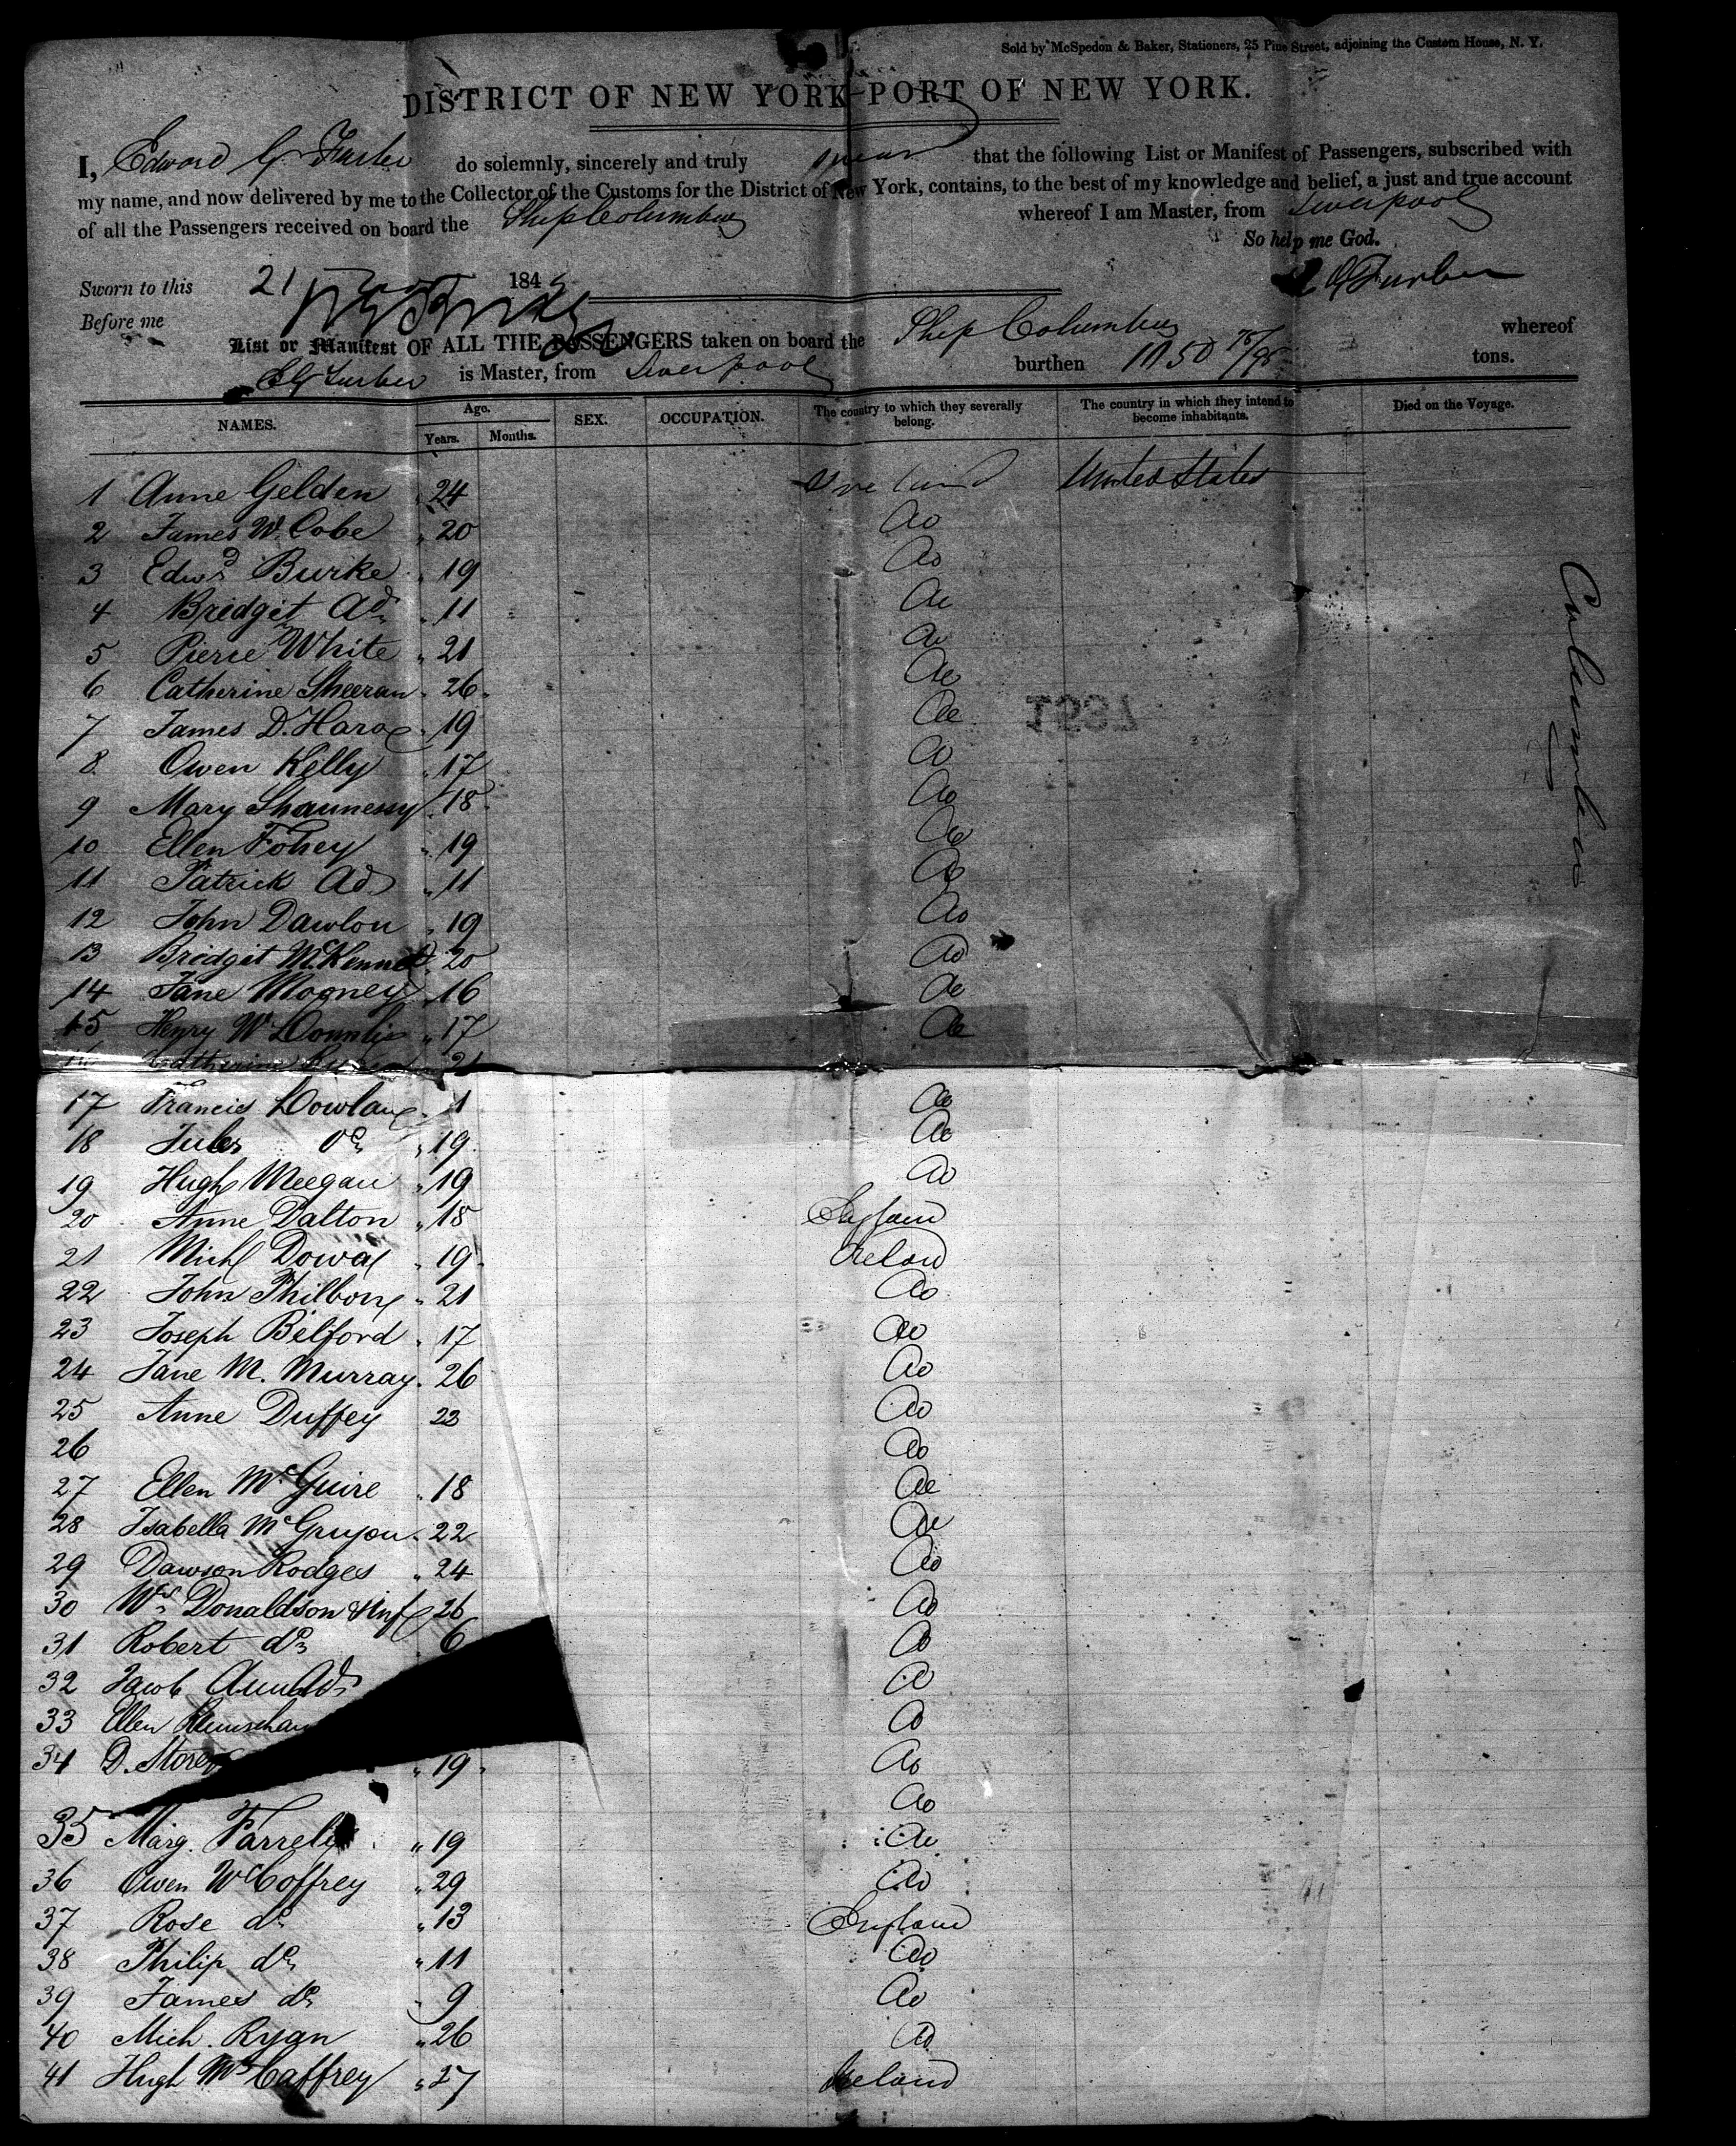 Sold by McSpedon & Baker, Stationers, 25 Pine Street, adjoining the Custom House, N. Y.
DISTRICT OF NEW YORK-PORT OF NEW YORK.
I, Edward G Furber do solemnly, sincerely and truly swear that the following List or Manifest of Passengers, subscribed with
my name, and now delivered by me to the Collector of the Customs for the District of New York, contains, to the best of my knowledge and belief, a just and true account
of all the Passengers received on board the Ship Columbus whereof I am Master, from Liverpool
So help me God.
Sworn to this 21 184
E G Furber
Before me
List or Manifest OF ALL THE PASSENGERS taken on board the Ship Columbus whereof
E G Furber is Master, from Liverpool burthen tons.
NAMES. Age. Years. Months. SEX. OCCUPATION. The country to which they severally belong. The country in which they intend to become inhabitants. Died on the Voyage.
1 Anne Gelden 24 Ireland United States
2 James W. Cobe " 20 do
3 Edwd Burke " 19 do
4 Bridget do " 11 do
5 Pierce White " 21 do
6 Catherine Sheeran " 26 do
7 James D. " 19 do
8 Owen Kelly " 17 do
9 Mary Shaunessy " 18 do
10 Ellen Fohey " 19 do
11 Patrick do " 11 do
12 John Dawlon " 19 do
13 Bridgit 20 do
14 Jane Mooney " 16 do
15 Henry " 17 do
Catherine 21
17 Francis 1 do
18 Jules do " 19 do
19 Hugh Meegan " 19 do
20 Anne Dalton " 18 England
21 Michl " 19 Ireland
22 John " 21 do
23 Joseph Belford " 17 do
24 Jane M. Murray " 26 do
25 Anne Duffey 23 do
26 do
27 Ellen McGuire " 18 do
28 Isabella " 22 do
29 Dawson Rodges " 24 do
30 Donaldson & inf 26 do
31 Robert do 6 do
32 Jacob do
33 Ellen do
34 D. " 19 do
do
35 Marg. Farrelly " 19 do
36 Owen McCoffrey " 29 do
37 Rose do " 13 England
38 Philip do " 11 do
39 James do " 9 do
40 Mich. Ryan " 26 do
41 Hugh McCaffrey " 27 Ireland
Columbus